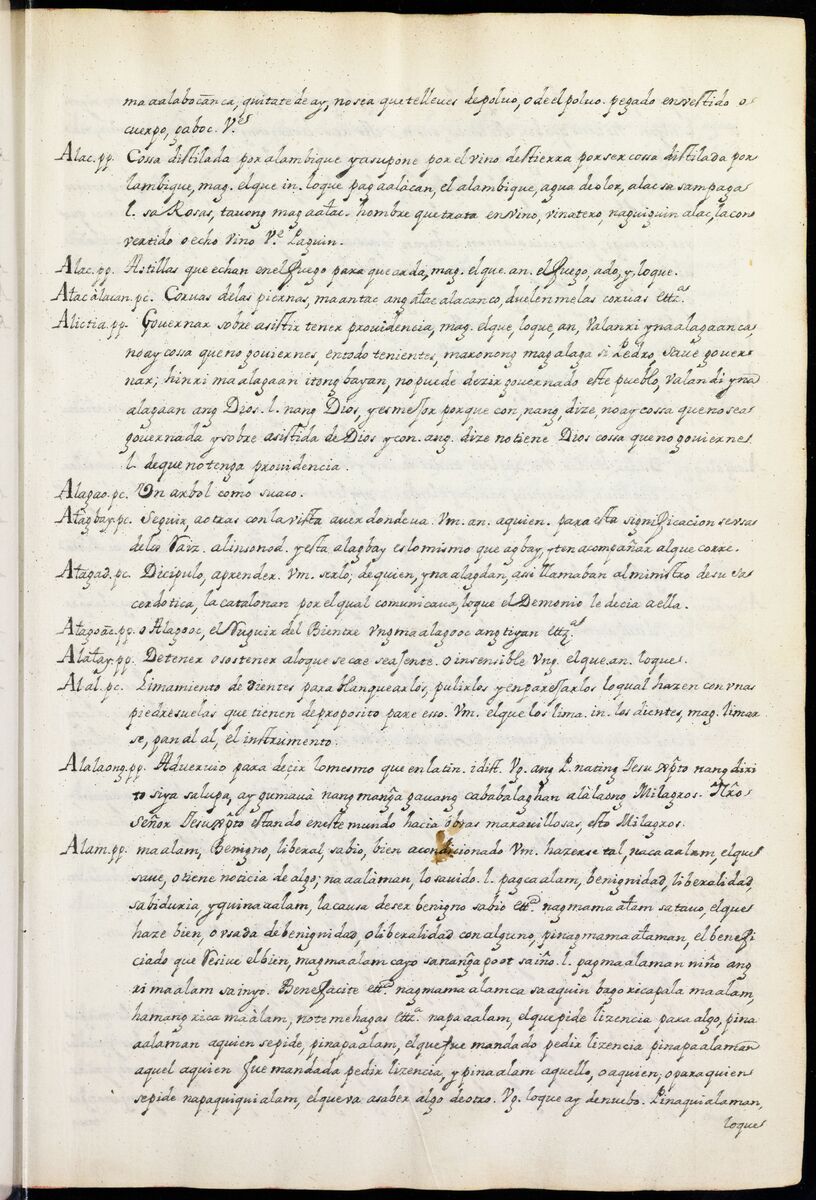 maaalabocanca, quitate de ay, no sea que te lleues de poluo, o de el poluo. pegado en vestido o
cuerpo, gaboc. V.es
Alac. pp. Cossa distilada por alambique y asupone por el vino destierra por ser cossa distilada por
lambique, mag. el que in. lo que pagaalácan, el alambique, agua de olor, alac sa sampaga
l. sa Rosas, tauong magaalac. hombre que trata en vino, vinatero, naguiguin alac, la con
vertido o echo vino V.e Laguin.
Alac. pp. Astillas que echan en el fuego para que arda, mag. el que. an. el fuego, ado, y, lo que.
Alac alacan. pc. Coruas de las piernas, maantac ang alac alacanco, duelenme las coruas ettz.as
pp. Governar sobre asistir tener providencia, mag. el que, lo que, an, Valanri yna alagaanca,
no ay cossa que no gouiernes, en todo tenientes, maronong mag alaga si Pedro, saue gouer
nar; hinri maalagaan itong bayan, no puede dezir governado este pueblo, valan di yna
alagaan ang Dios. l. nang Dios, y es mejor porque con, nang, dize, no ay cossa que no sea
governada y sobre asistida de Dios y con. ang. dize no tiene Dios cossa que no gouierne
l. de que no tenga providencia.
Alagao. pc. Un arbol como suaco.
Alagbay. pc. Seguir, a otras con la vista a ver donde va. Vm. an. a quien. para esta significacion se usa
de los alinsonod. y esta alagbay es lo mismo que agbay, y ten acompañar al que corre.
Alagad. pc. Dicipulo, aprender. Vm. serlo; de quien, yna alagdan, assi llamaban al ministro de su sa
cerdotica, la catalonan por el qual comunicaua, lo que el Demonio le decia a ella.
pp. o Alagooc, el Ruguir del Bientre Vngmaalagooc ang tiyan ettz.as
Alalay. pp. Detener o sostener a lo que se cae sea sente. o insensible Vng. el que. an. lo que.
Al al. pc. Limamiento de dientes para blanquearlos, pulirlos y enparejarlos lo qual hazen con vnas
piedresuelas que tienen de proposito pare esso. Vm. el que los lima. in. los dientes, mag. limar
se, pan al al, el instrumento.
Alalaong. pp. Adueruio para deçir lo mesmo que en latin. id est. Vg. ang P. nating Jesuxp̃to nang diri
to siya salupa, ay gumauà nang mangã gauang cababalaghan alàlaong Milagros. Ñrõ
señor Jesuxp̃to estando en este mundo hacia obras marauillosas, esto Milagros.
Alam. pp. maalam, Benigno, liberal, sabio, bien acondicionado Vm. hazerse tal, nacaaalam, el que
saue, o tiene noticia de algo; naaalàman, lo sauido. l. pagcaalam, benignidad, liberalidad,
sabiduria, y quinaaalam, la causa de ser benigno sabio ettz.a nagmamaalam sa tauo, el que
haze bien, o vsada de benignidad, o liberalidad con alguno, pinagmamaalaman, el benefi
ciado que resiue el bien, magmaalam cayo sa nangã poot sa iño. l. pagmaalaman niño ang
ri maalam sa inyo. Benefacite ettz.a nagmamaalamca sa aquin bago rica pala maalam,
hamang rica maalam, no te me hagas ettz.a napaaalam, el que pide lizencia para algo, pina
aalaman a quien se pide, pinapaalam, el que fue mandado pedir lizencia pinapaalaman
aquel a quien fue mandada pedir lizencia, y pinaalam aquello, o a quien, o para quien
se pide napaquiquialam, el que va a saber algo de otro. Vg. lo que ay de nuebo. Pinaquialaman,
loque